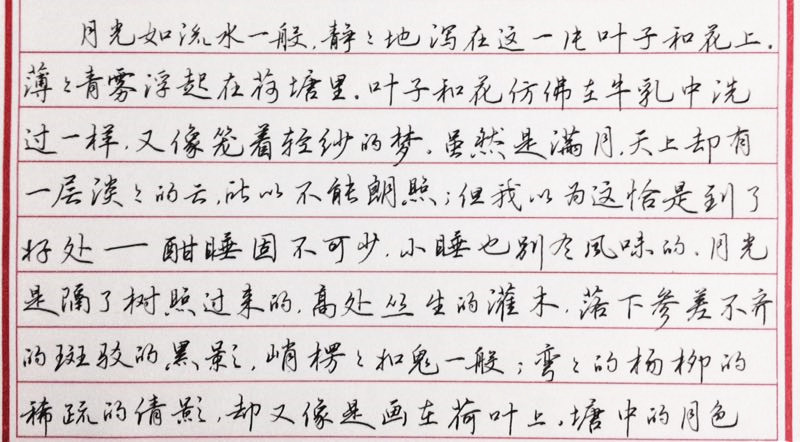 月光如流水一般,静〻地泻在这一片叶子和花上.
薄〻青雾浮起在荷塘里.叶子和花仿佛在牛乳中洗
过一样,又像笼着轻纱的梦.虽然是满月,天上却有
一层淡〻的云,所以不能朗照;但我以为这恰是到了
好处——酣睡固不可少,小睡也别有风味的.月光
是隔了树照过来的,高处丛生的灌木,落下参差不齐
的斑驳的黑影,峭楞〻如鬼一般;弯〻的杨柳的
稀疏的倩影,却又像是画在荷叶上.塘中的月色